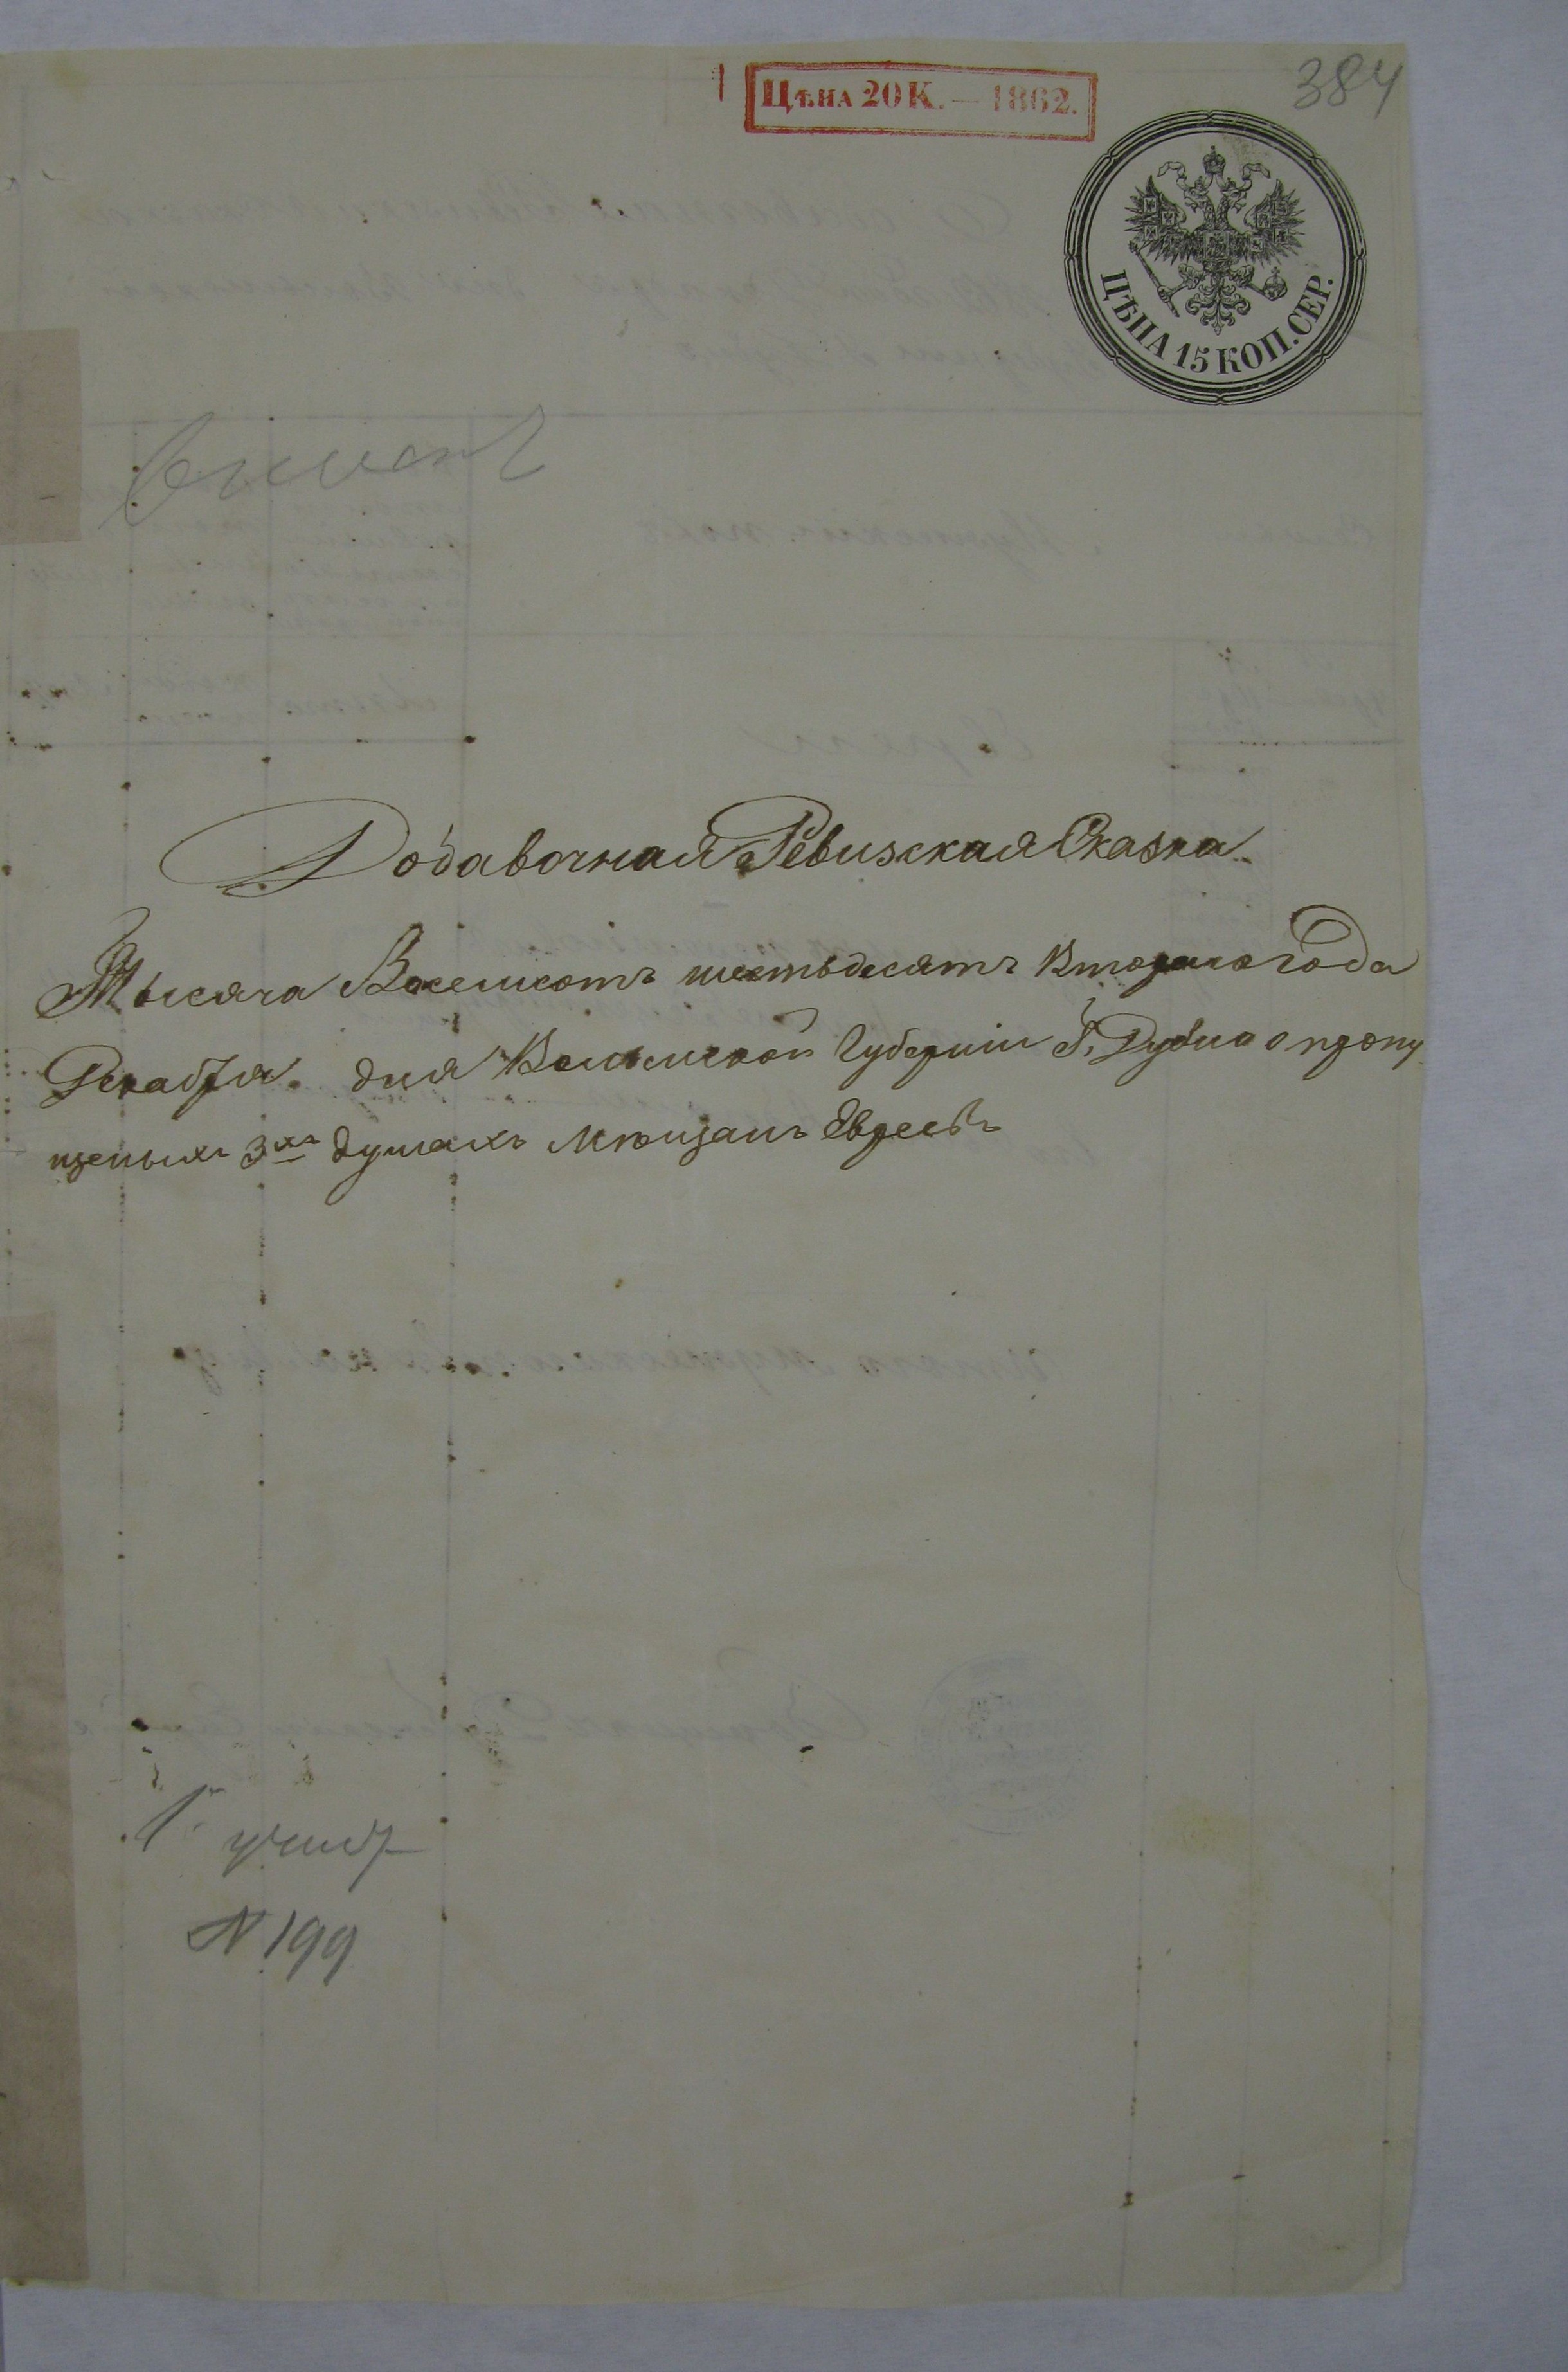 384
Цѣна 20 К. — 1862.
ЦѢНА 15 КОП. СЕР.
Добавочная Ревизская Сказка
Тысяча Восемсотъ шестьдесятъ Втораго года
Декабря дня Волынской Губерніи Г. Дубна о пропу
щеныхъ 3хъ душахъ Мѣщанъ Евреевъ
N 199